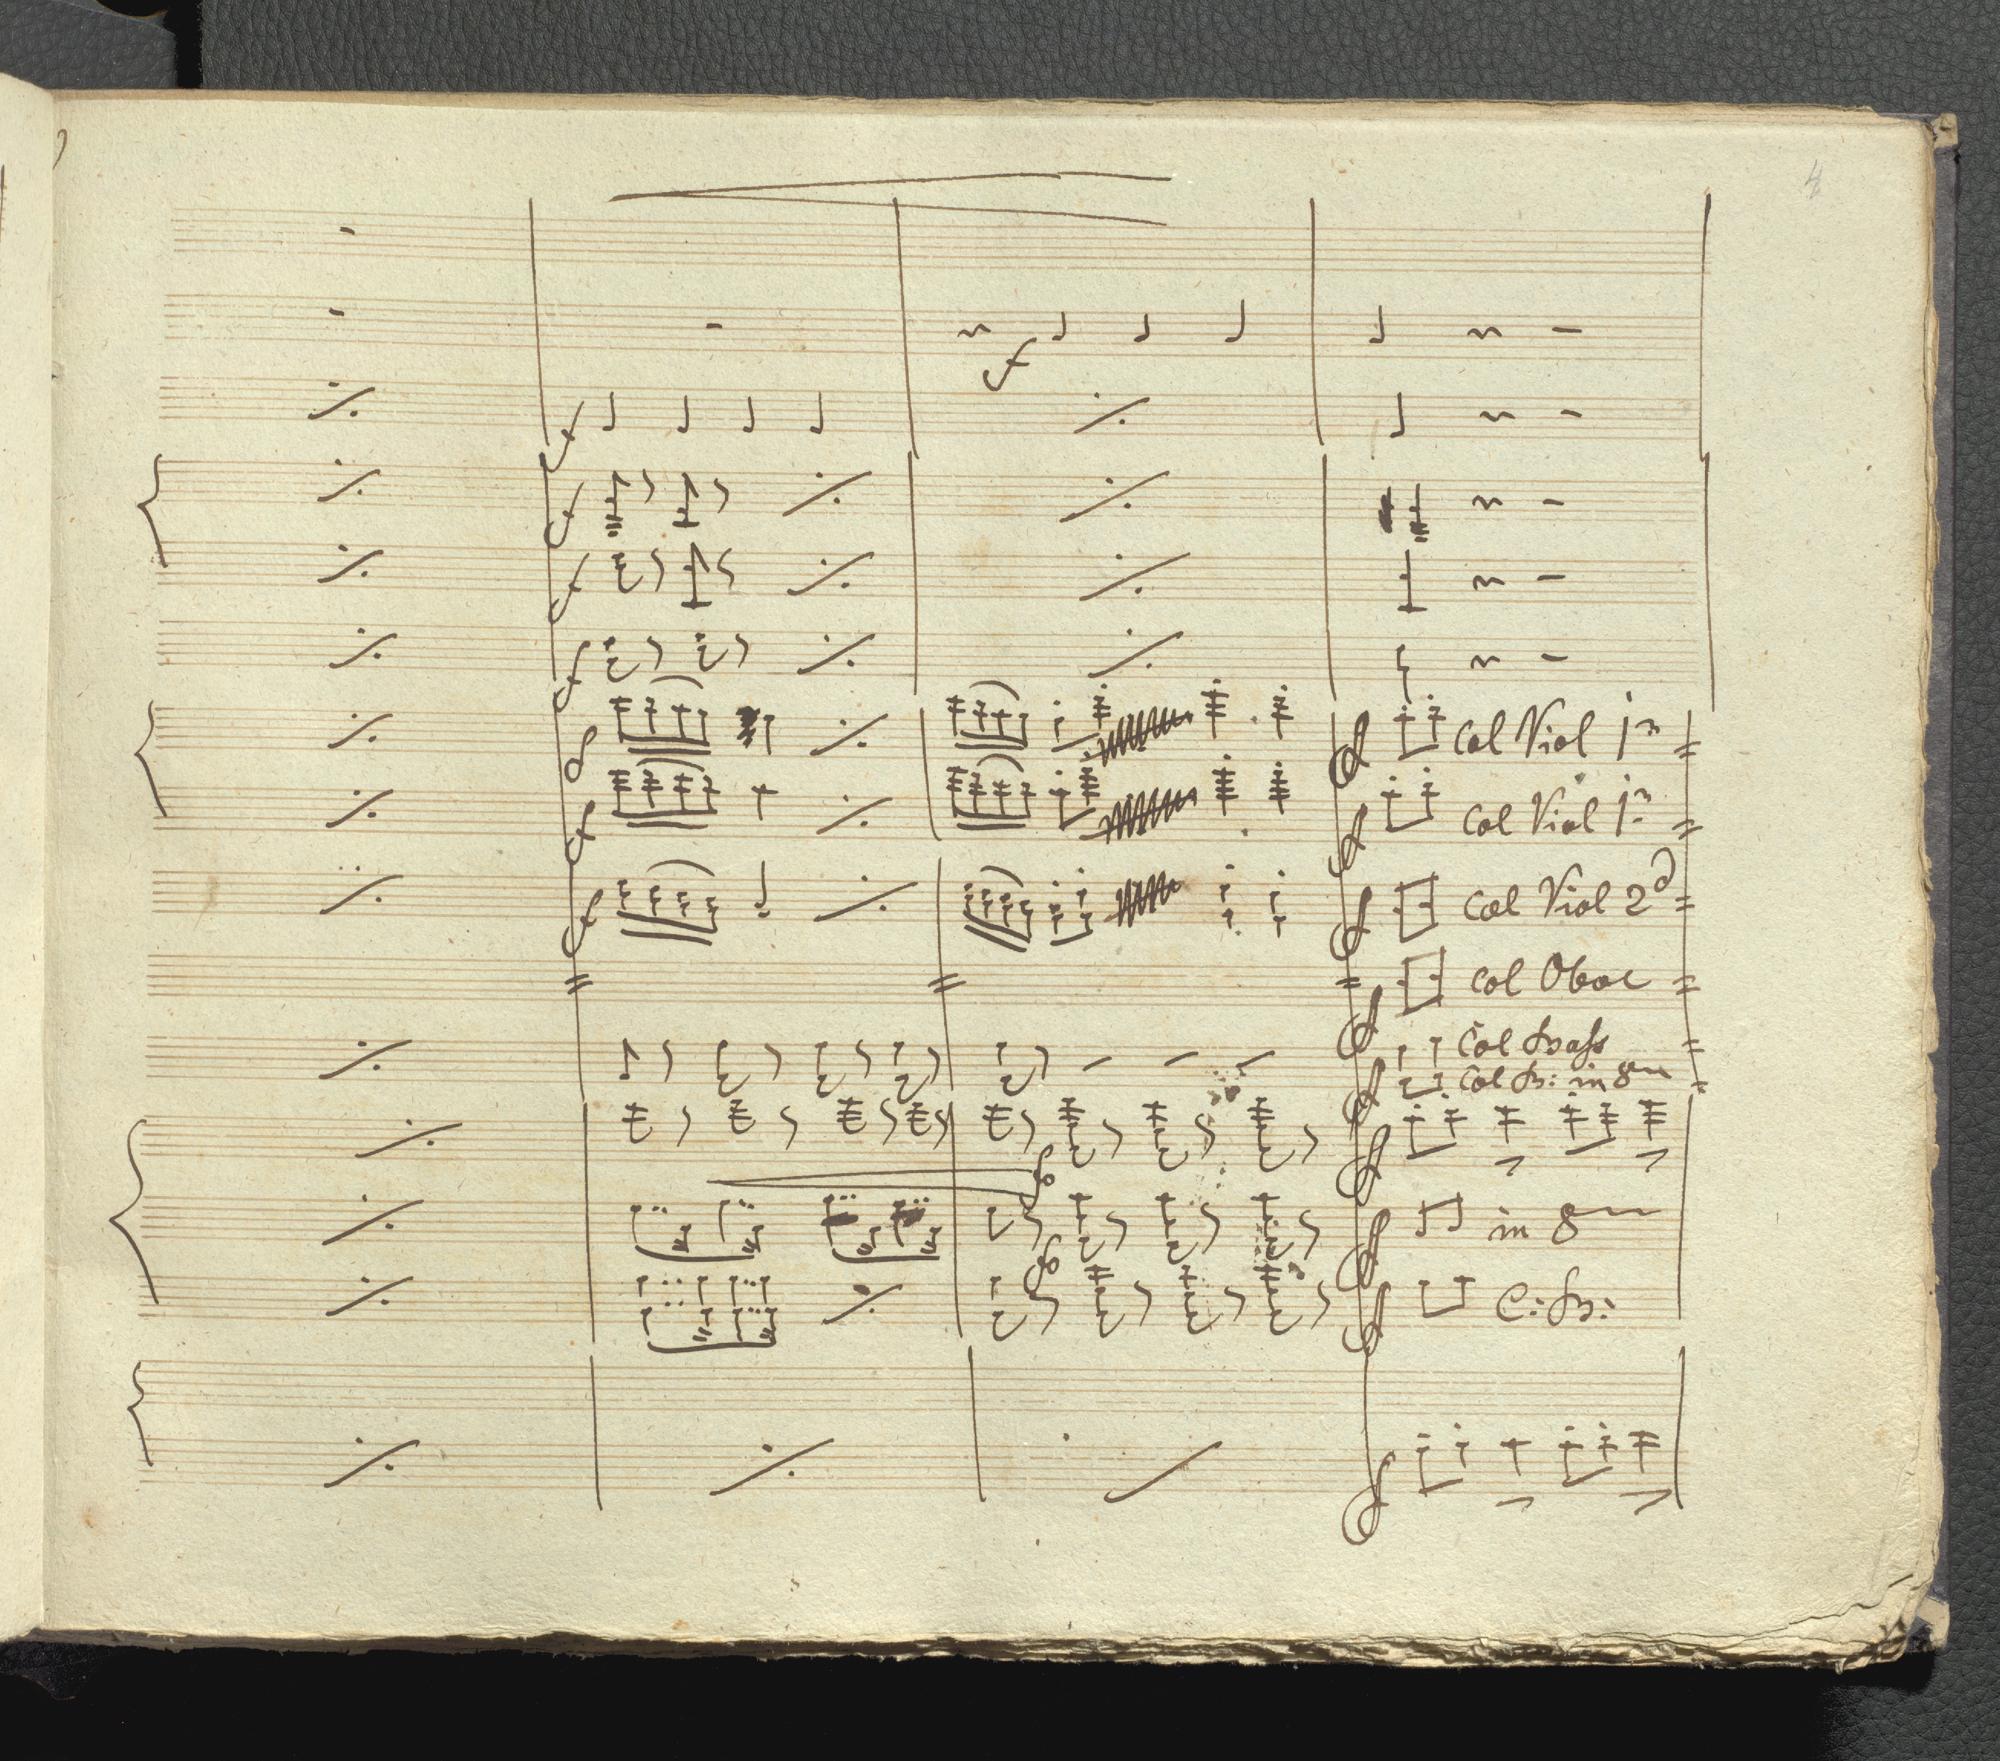 4
f
f
f
f
f
f Col Viol 1mo
f f Col Viol 1mo
f f Col Viol 2d
Col Oboe
f Col Bass
f Col B: in 8va
f
f in 8va
f C: B:
f